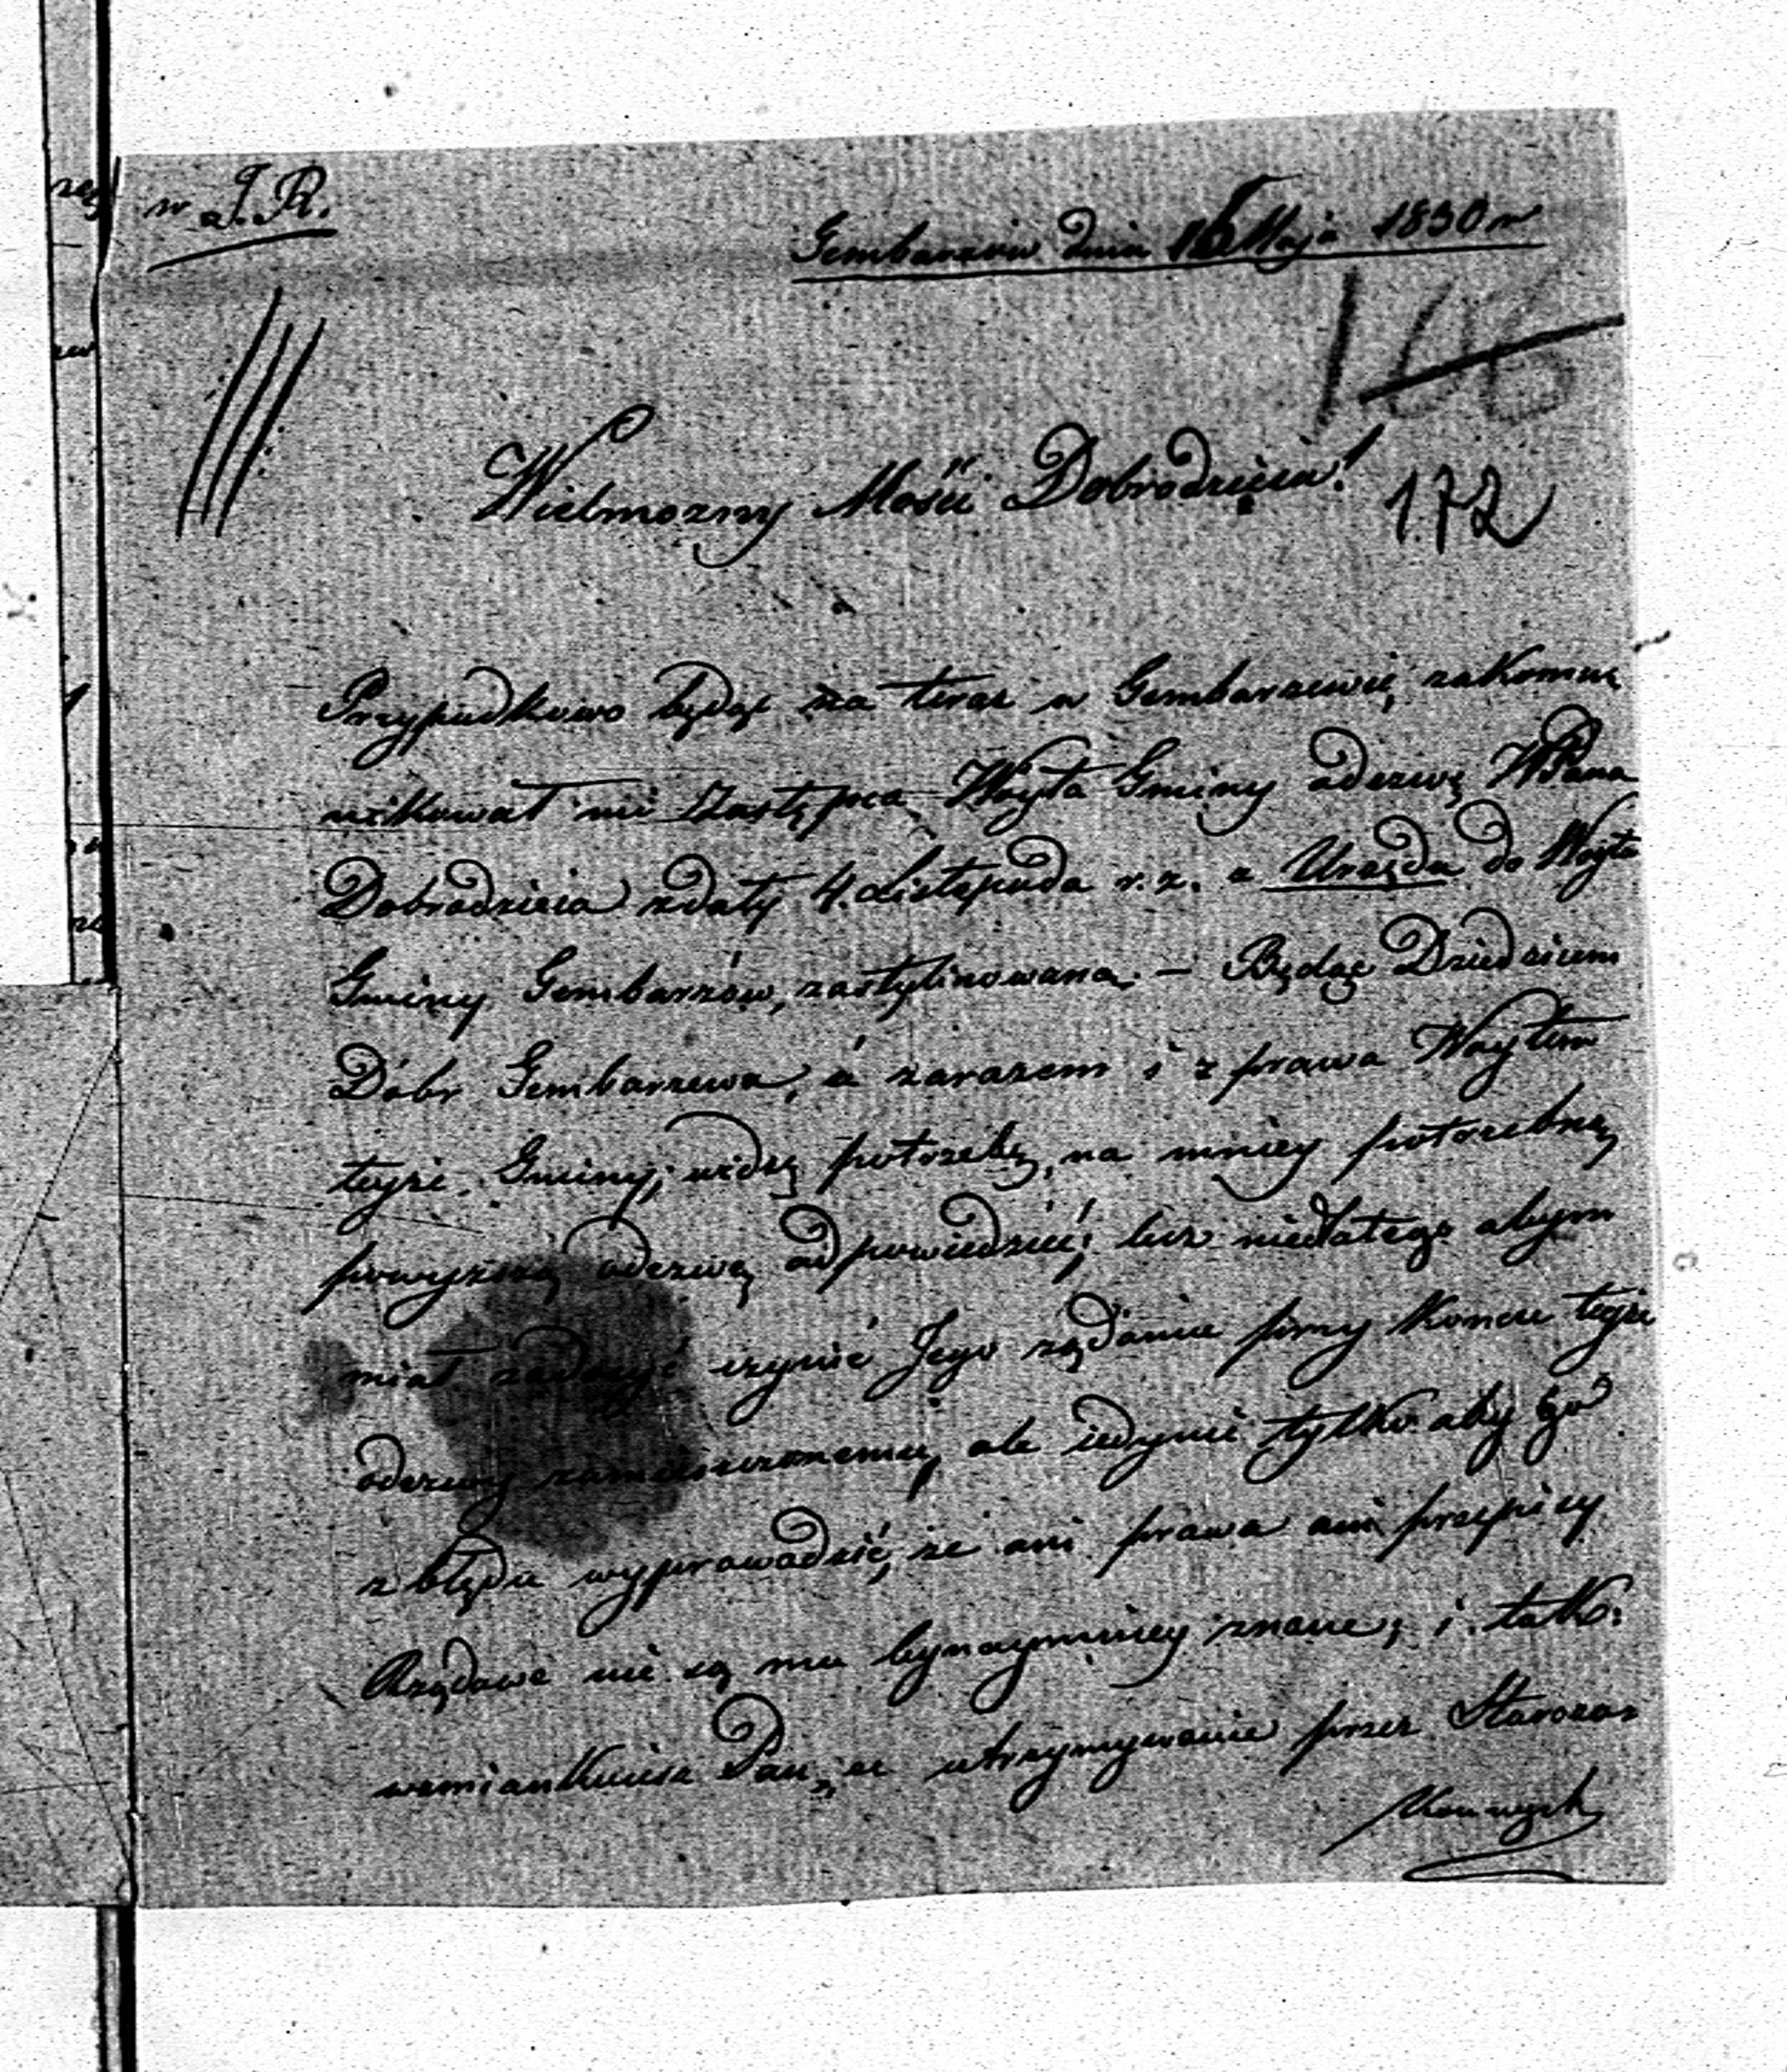 w I. R.
Gembarzew dnia 16 Maja 1830 r
106
Wielmozny Mości Dobrodzieiu!
172
Przypadkowo będąc na teraz w Gembarzewie, zakomu,
nikował mi Zastępca Woyta Gminy odezwę WPana
Dobrodzieia zdaty 4. Listopada r. z. z Urzędu do Woyta
Gminy Gembarzów, zastylizowaną. — Będąc Dziedzicem
Dóbr Gembarzewa, á zarazem i z prawa Woytem
teyże Gminy, widzę potrzebę, na mniey potrzebną
powyższą odezwę odpowiedzieć; lecz niedlatego abym
miał zadosyć czynić Jego rządaniu przy koncu teyże
odezwy zamieszczonemu, ale iedynie tylko aby Go
z błędu wyprowadzić, że ani prawa ani przepisy
Rządowe nie są mu bynaymniey znane, i tak:
wzmiankuiesz Pan, że utrzymywanie przez Staroza,
konnych